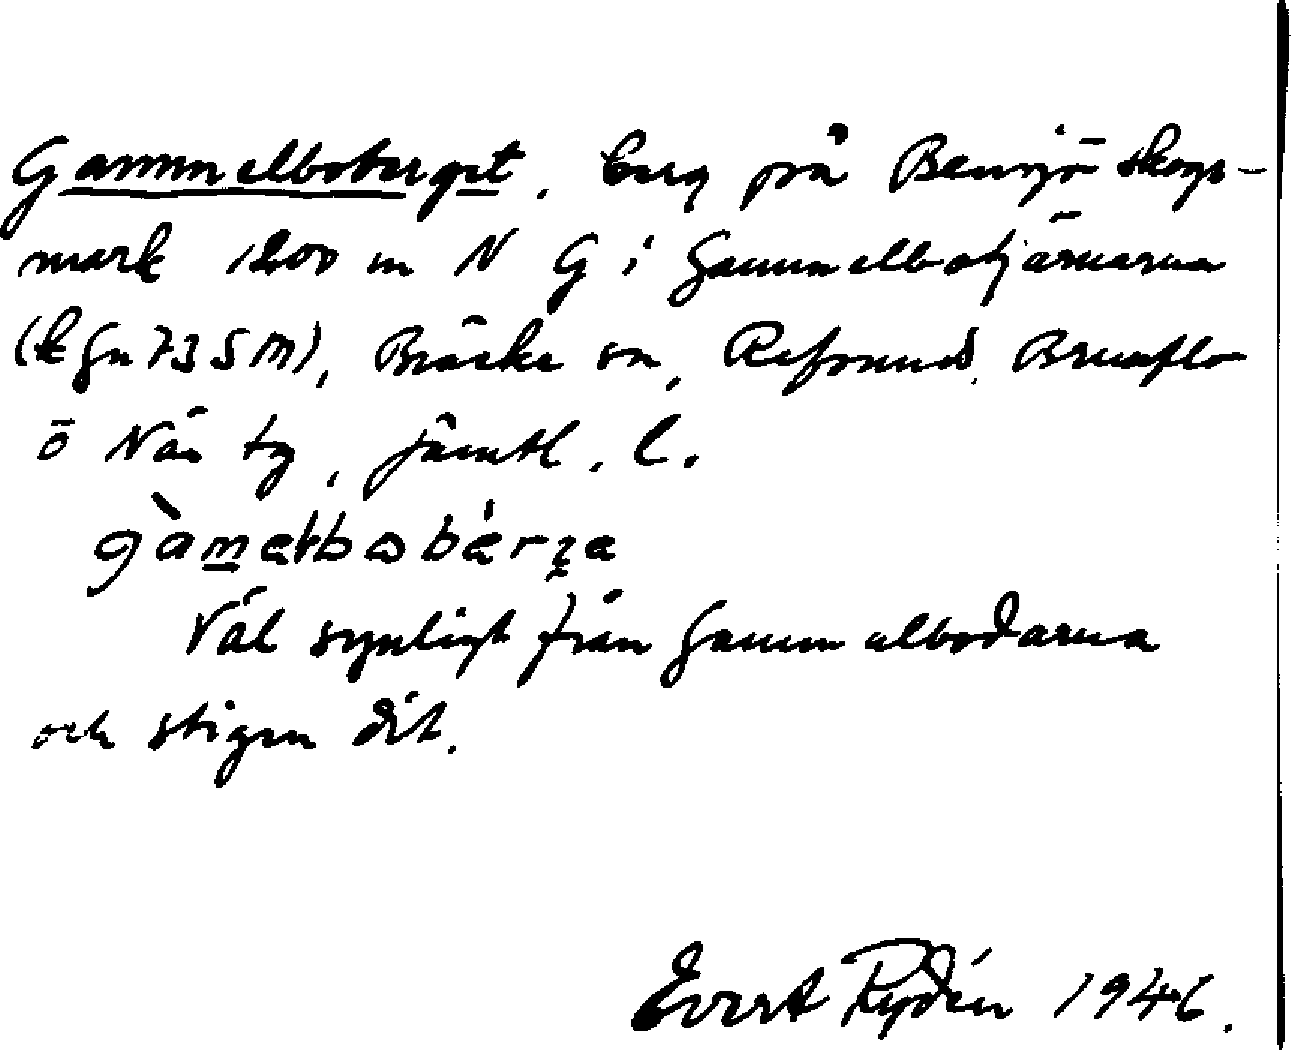 Gammelboberget, berg på Bensjö skogs-
mark 1200 m N G i Gammelbotjärnarna
(k gn 73 5 M), Bräcke sn, Refsunds, Brunflo
o Näs tg, Jämtl. l.
gàmeɫbobérge
Väl synligt från Gammelbodarna
och stigen dit.
Evert Rydén 1946.